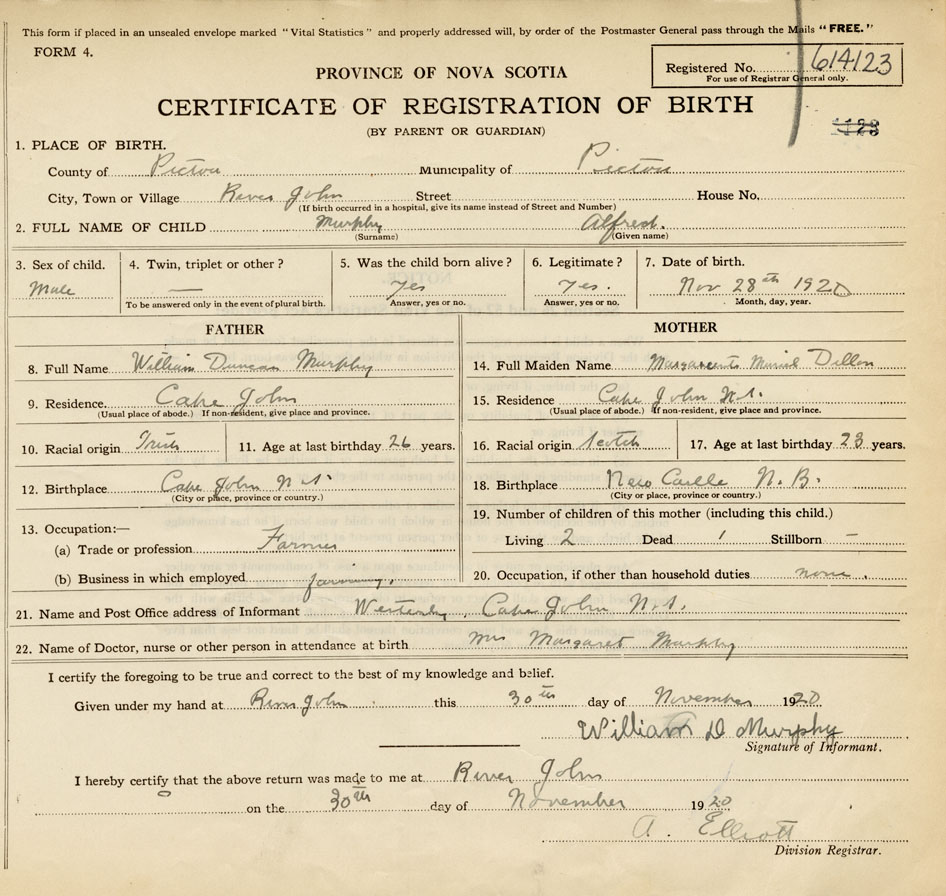 This form if placed in an unsealed envelope marked "Vital Statistics" and properly addressed will, by order of the Postmaster General pass through the Mails "FREE."
FORM 4.
Registered No. 614123
For use of Registrar General only.
PROVINCE OF NOVA SCOTIA
CERTIFICATE OF REGISTRATION OF BIRTH
(BY PARENT OR GUARDIAN)
1. PLACE OF BIRTH.
County of Pictou Municipality of Pictou
City, Town or Village River John Street House No.
(If birth occurred in a hospital, give its name instead of Street and Number)
2. FULL NAME OF CHILD Murphy Alfred.
(Surname) (Given name)
3. Sex of child. 4. Twin, triplet or other? 5. Was the child born alive? 6. Legitimate? 7. Date of birth.
Male — Yes Yes. Nov 28th 1920
To be answered only in the event of plural birth. Answer, yes or no. Answer, yes or no. Month, day, year.
FATHER
8. Full Name William Duncan Murphy
9. Residence. Cape John
(Usual place of abode.) If non-resident, give place and province.
10. Racial origin Irish 11. Age at last birthday 26 years.
12. Birthplace Cape John N.S.
(City or place, province or country.)
13. Occupation:—
(a) Trade or profession Farmer
(b) Business in which employed farming.
MOTHER
14. Full Maiden Name Dillon
15. Residence Cape John N.S.
(Usual place of abode.) If non-resident, give place and province.
16. Racial origin Scotch 17. Age at last birthday 23 years.
18. Birthplace N.B.
(City or place, province or country.)
19. Number of children of this mother (including this child.)
Living 2 Dead 1 Stillborn —
20. Occupation, if other than household duties none.
21. Name and Post Office address of Informant Cape John N.S.
22. Name of Doctor, nurse or other person in attendance at birth Mrs Margaret Murphy
I certify the foregoing to be true and correct to the best of my knowledge and belief.
Given under my hand at River John this 30th day of November 1920
William D Murphy
Signature of Informant.
I hereby certify that the above return was made to me at River John
on the 30th day of November 1920
A. Elliott
Division Registrar.